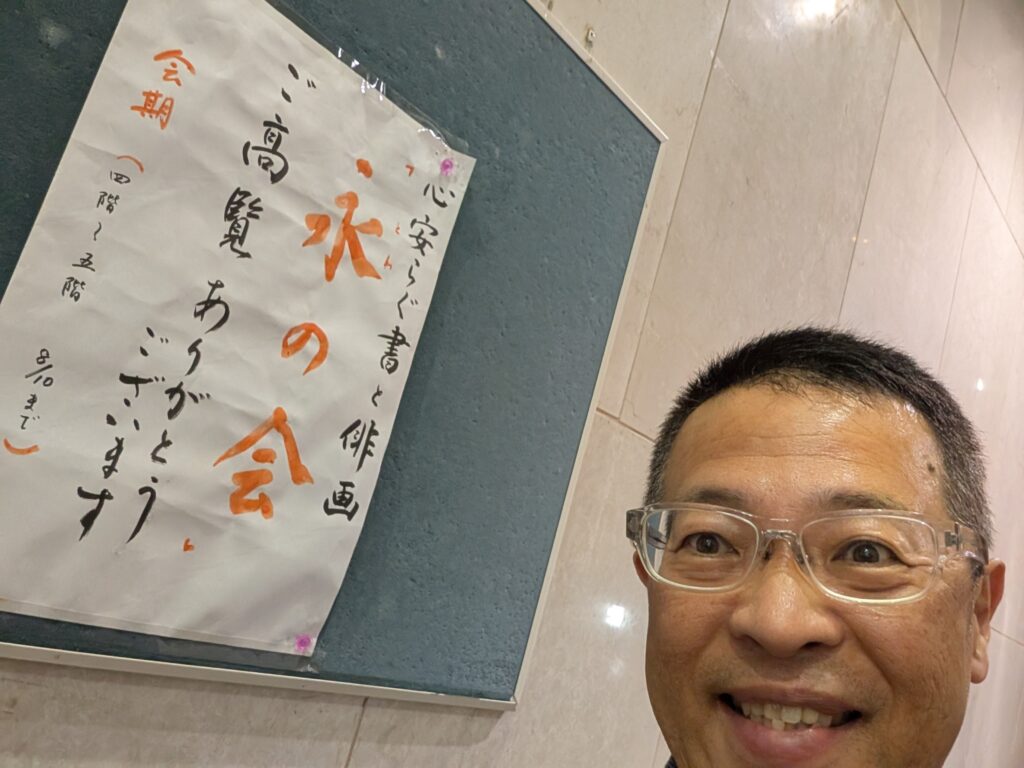 心安らぐ書と俳画
「永の会
ご高覧ありがとう
ございます」
会期
(四階〜五階
8/10まで)